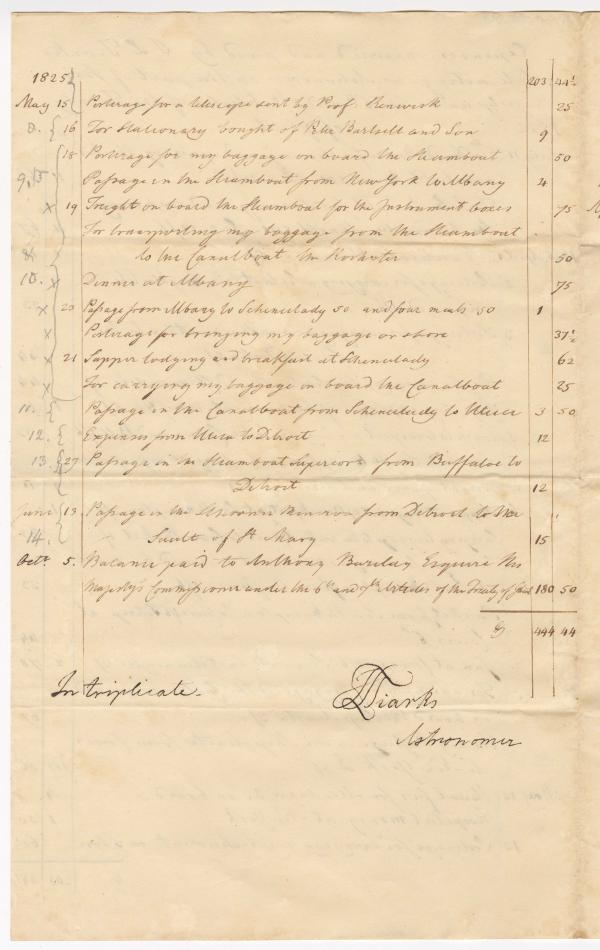 1825 203 44½
May 15 Porterage for a telescope sent by Prof. Renwick 25
8. 16 For Stationary bought of Peter Burtsell and Son 9
18 Porterage for my baggage on board the Steamboat 50
9, Passage in the Steamboat from New York to Albany 4
x 19 Freight on board the Steamboat for the Instrument boxes 75
For transporting my baggage from the Steamboat
to the Canalboat the Rochester 50
10. x Dinner at Albany 75
x 20 Passage from Albany to Schenectady 50 and four meals 50 1
x Porterage for bringing my baggage on shore 37½
x 21 Supper lodging and breakfast at Schenectady 62
x For carrying my baggage on board the Canalboat 25
11. Passage in the Canalboat from Schenectady to Utica 3 50
12. Expenses from Utica to Detroit 12
13. 27 Passage in the Steamboat Superior from Buffaloe to
Detroit 12
June 13 Passage in the Schooner Minerva from Detroit to the "
14. Sault of St Mary 15
Octr. 5. Balance paid to Anthony Barclay Esquire His
Majesty's Commissioner under the 6th and 7th Articles of the Treaty of Ghent 180 50
$ 444 44
In triplicate.
Tiarks
Astronomer